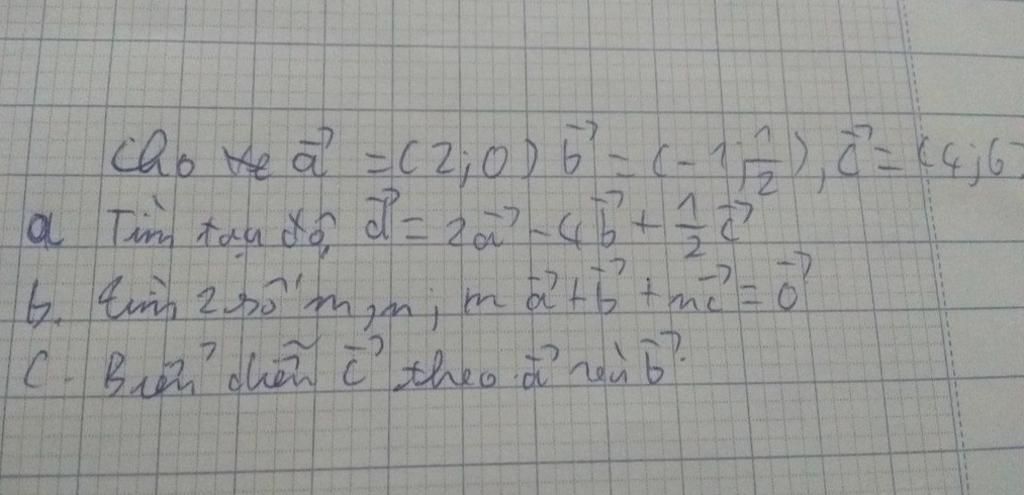 Cho ve a⃗ = (2;0) b⃗ = (-1; 1/2), c⃗ = (4;6)
a Tìm tọa độ d⃗ = 2a⃗ - 4b⃗ + 1/2 c⃗
b. tìm 2 số m, n; m a⃗ + b⃗ + nc⃗ = 0⃗
C. Biểu diễn c⃗ theo a⃗ và b⃗.